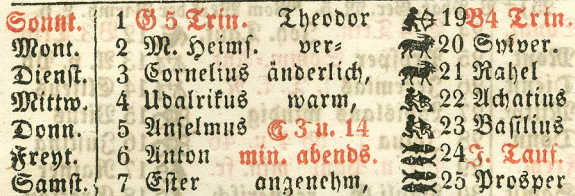 Sonnt. 1 G 5 Trin. Theodor 19 B4 Trin.
Mont. 2 M. Heimſ. ver= 20 Sylver.
Dienſt. 3 Cornelius änderlich, 21 Rahel
Mittw. 4 Udalrikus warm, 22 Achatius
Donn. 5 Anſelmus ☾ 3 u. 14 23 Baſilius
Freyt. 6 Anton min. abends. 24 J. Tauf.
Samſt. 7 Eſter angenehm, 25 Proſper